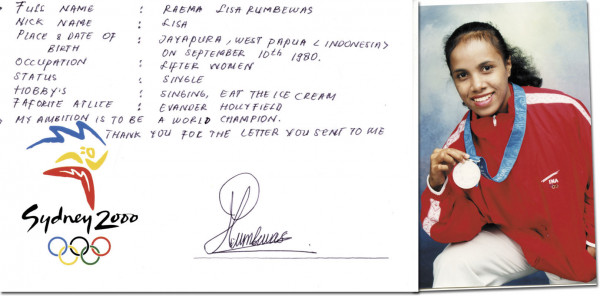 • Full Name : Raema Lisa Rumbewas
• Nick Name : Lisa
• Place & Date of Birth : Jayapura, West Papua < Indonesia >
on September 10th 1980.
• Occupation : Lifter Women
• Status : Single
• Hobby's : Singing, Eat the Ice Cream
• Faforite Atlite : Evander Hollyfield
• My ambition is to be a World Champion.
Thank you for the letter you sent to me
Sydney 2000
Rumbewas
INA